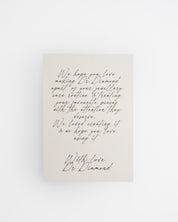 We hope you love
making Dr Diamond
apart of your jewellery
care routine & treating
your favourite pieces
with the attention they
deserve.
We loved creating it
& we hope you love
using it.
With love
Dr Diamond